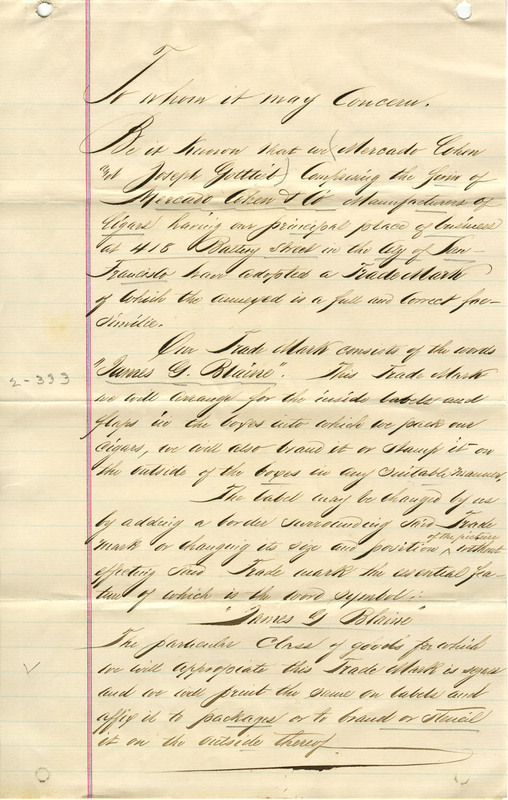 To whom it may Concern.
Be it Known that we (Mercado Cohen
and Joseph Gottlieb) Comprising the firm of
Mercado Cohen & Co Manufacturers of
Cigars having our principal place of business
at 418 Battery Street in the City of San
Francisco have adopted a Trade Mark
of which the annexed is a full and correct fac-
simile.
Our Trade Mark consists of the words
"James G. Blaine". This Trade Mark
we will arrange for the inside labels and
flaps in the boxes into which we pack our
Cigars, we will also brand it or stamp it on
2-393
the outside of the boxes in any suitable manner.
The label may be changed by us
by adding a border surrounding said Trade
mark or changing its size and position of the picture without
effecting said Trade mark the essential fea-
ture of which is the word symbol:
"James G Blaine"
The particular Class of goods for which
we will appropiate this Trade Mark is
and we will print the same on labels and
affix it to packages or to brand or stencil
it on the outside thereof.